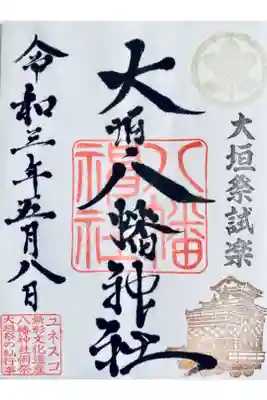 大垣祭試楽
大垣八幡神社
八幡
神社
令和三年五月八日
ユネスコ
無形文化遺産
八幡神社例祭
大垣祭の𨏍行事